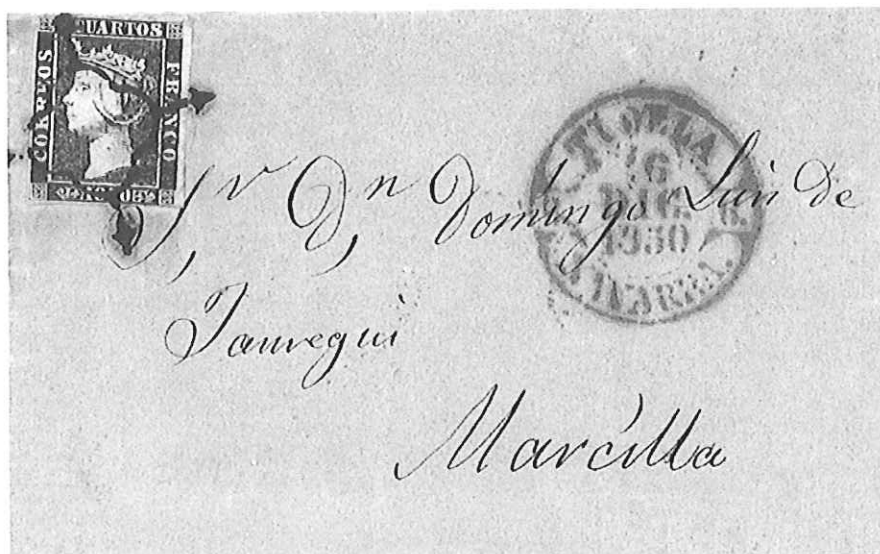 CUARTOS
CORREOS
FRANCO
TUDELA
16
DIC.
1850
NAVARRA.
Sr. Dn. Domingo Luis de
Jauregui
Marcilla